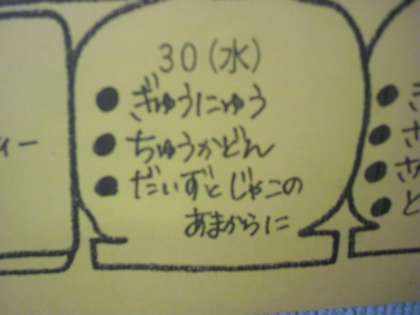 30(水)
●ぎゅうにゅう
●ちゅうかどん
●だいずとじゃこの
あまからに
ィー